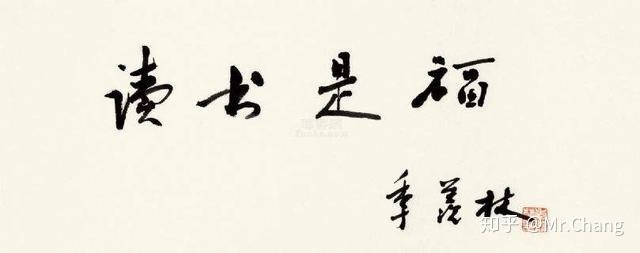 讀书是福
季羡林
知乎 @Mr.Chang